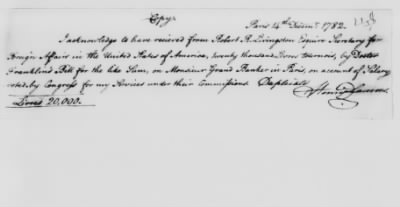 Copy. Paris 14th Decemr. 1782.
I acknowledge to have received from Robert R. Livingston Esquire Secretary for
Foreign Affairs in the United States of America, twenty thousand livres tournois, by Doctor
Franklins Bill for the like Sum, on Monsieur Grand Banker in Paris, on account of Salary
voted by Congress for my Services under their Commissions. Duplicate
Livres 20,000. Henry Laurens.